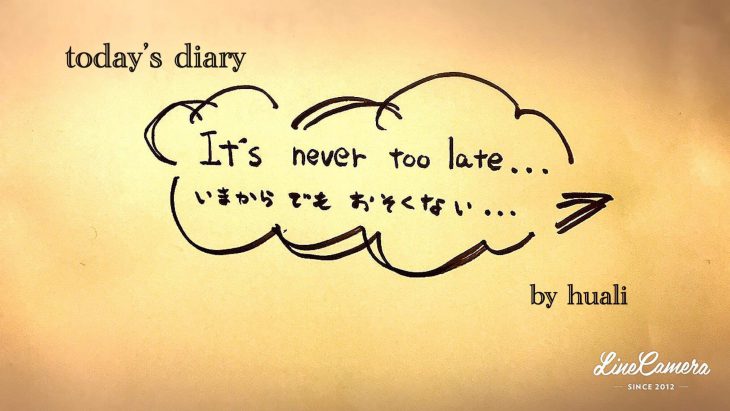 today's diary
It's never too late...
いまからでも おそくない...
by huali
LineCamera
SINCE 2012